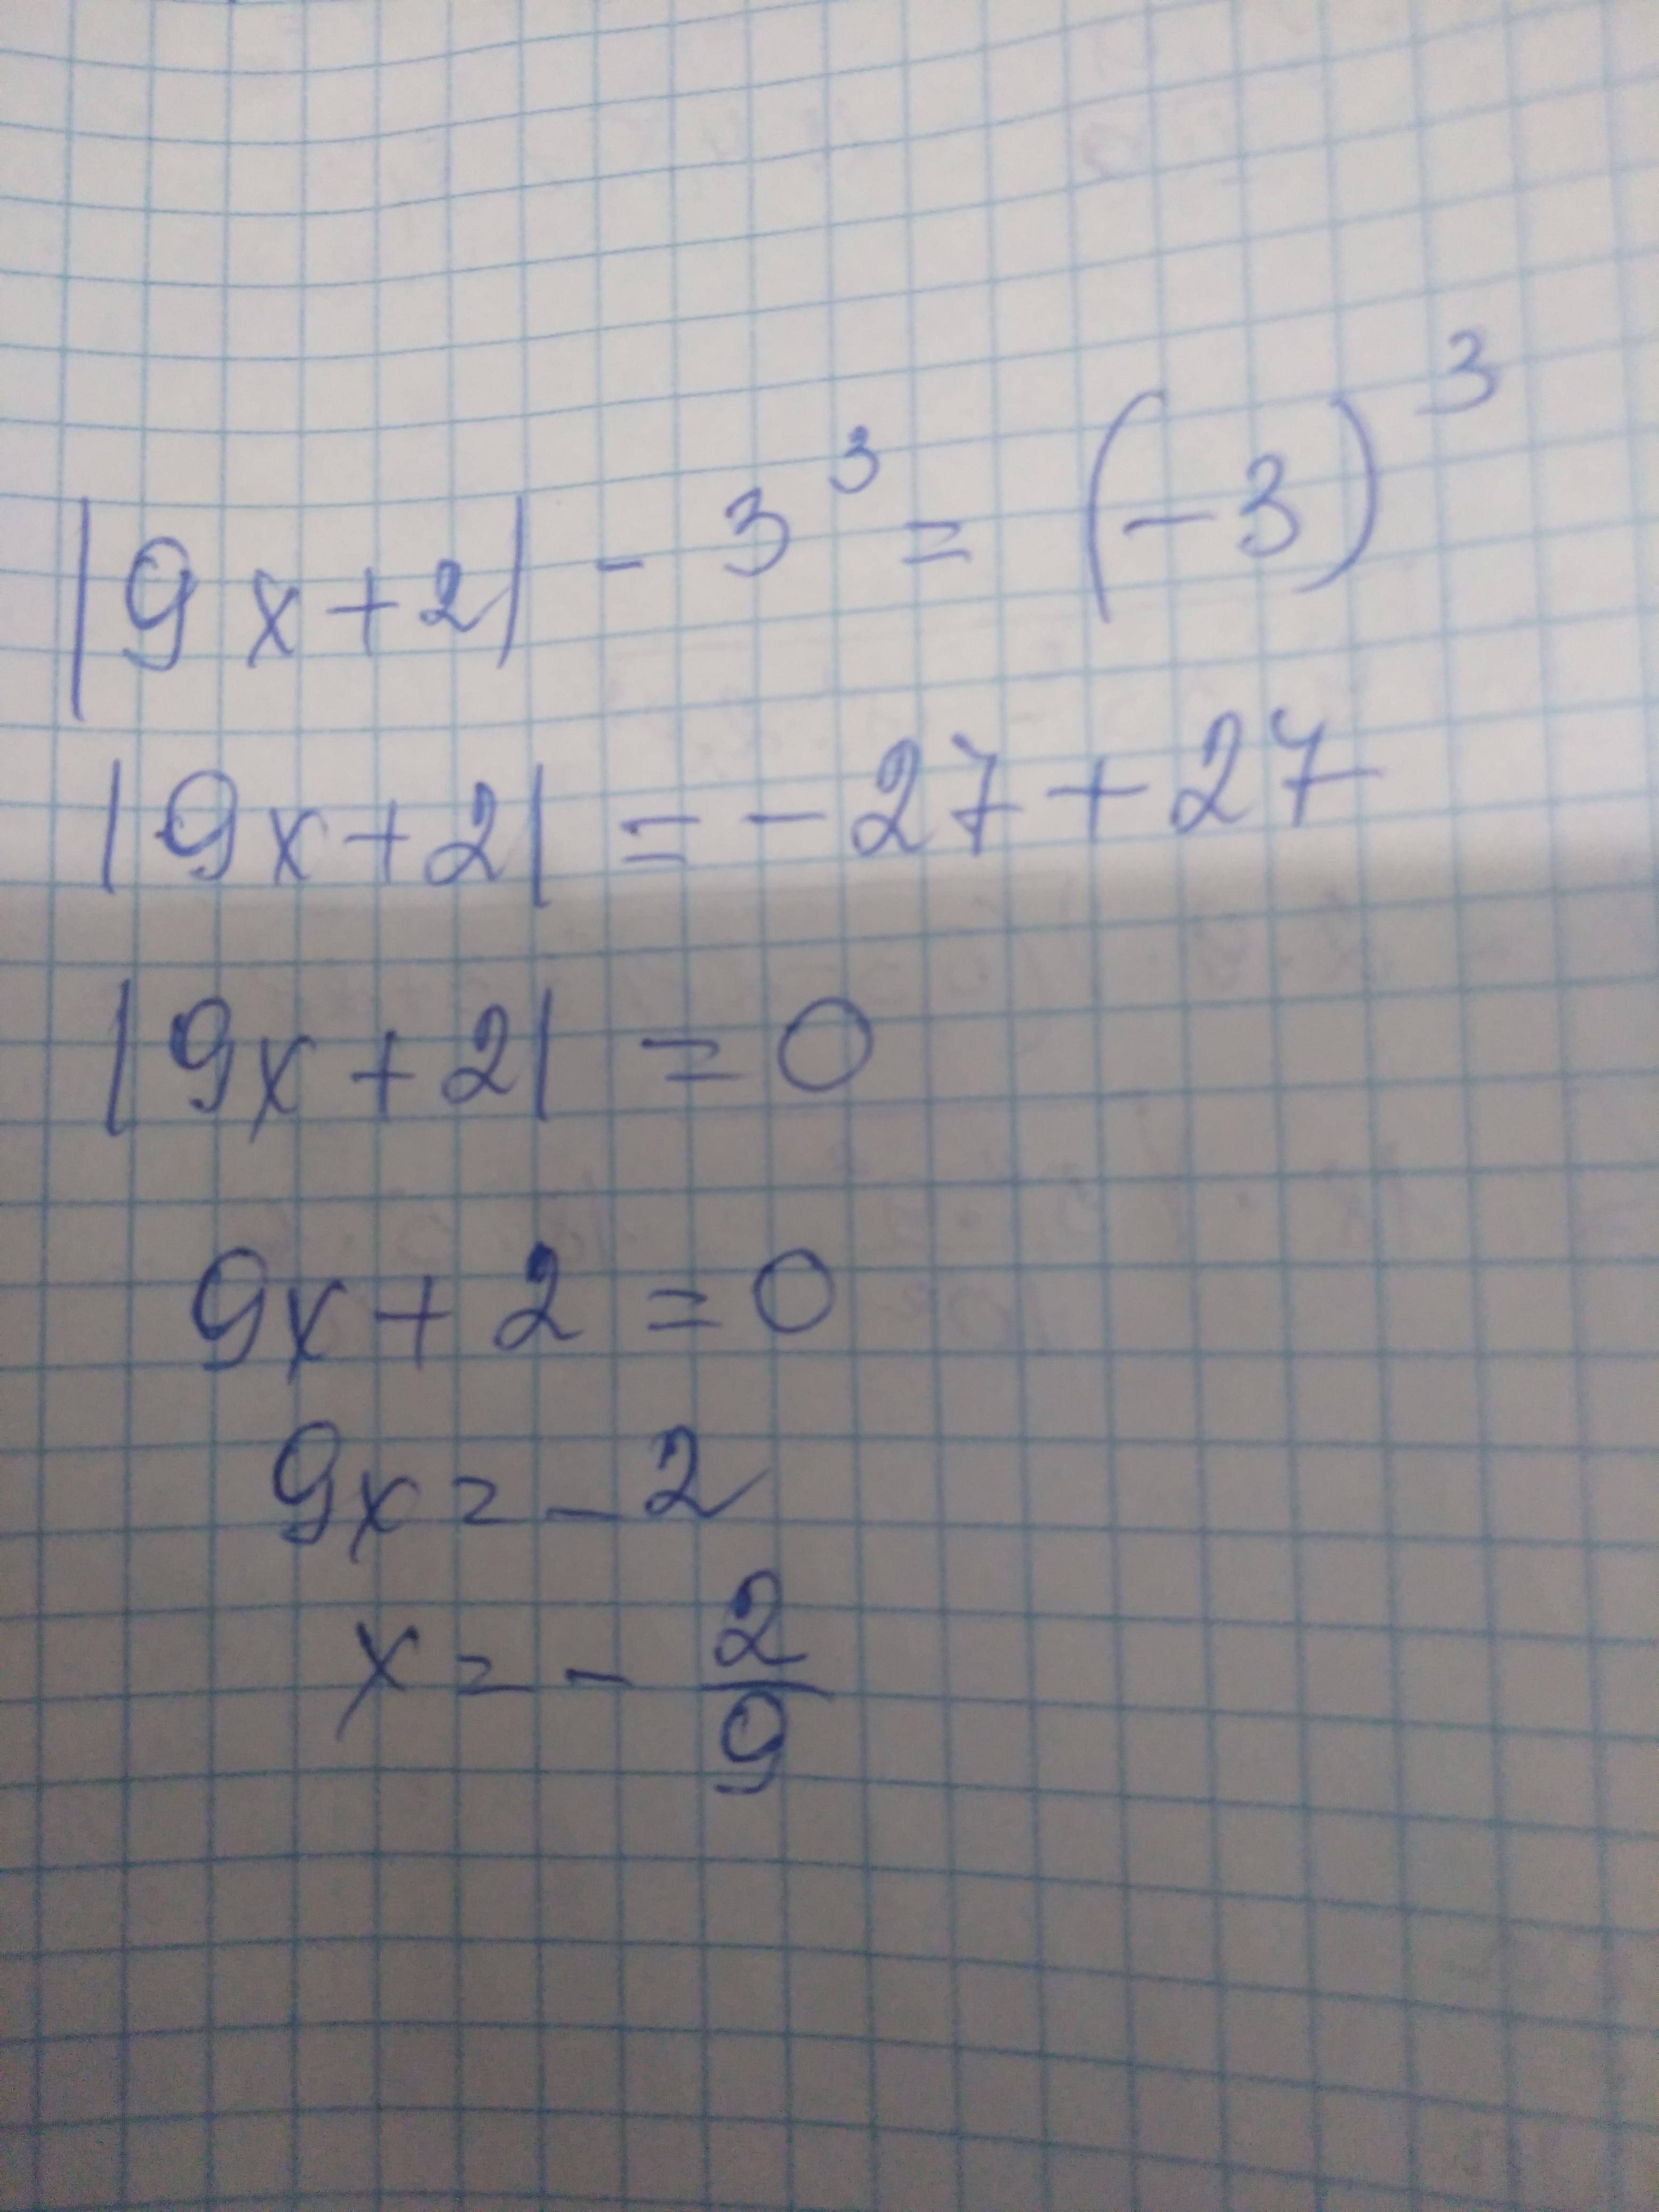 |9x+2| - 3³ = (-3)³
|9x+2| = -27+27
|9x+2| = 0
9x+2=0
9x=-2
x=-2/9